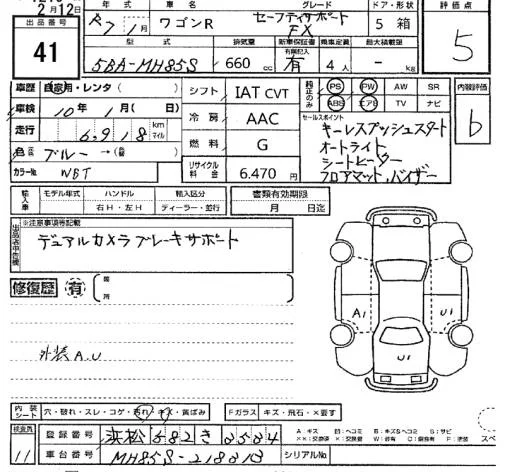 2月12日
出品番号
41
年式
R7 1月
車名
ワゴンR
グレード
セーフティサポート
FX
ドア・形状
5 箱
評価点
5
型式
5BA-MH85S
排気量
660 cc
新車保証書
有
乗車定員
4 人
最大積載量
- kg
車歴 自家用・レンタ ( )
車検 10年 1月( 日)
走行 6,918 km マイル
色 ブルー →( )
カラーNo. WBT
シフト IAT CVT
冷房 AAC
燃料 G
リサイクル料金 6,470 円
純正のみ
PS PW AW SR
ABS エアB TV ナビ
内装評価
b
セールスポイント
キーレスプッシュスタート
オートライト
シートヒーター
フロアマット,バイザー
輸入車
モデル年式
ハンドル
右H・左H
輸入区分
ディーラー・並行
書類有効期限
月 日迄
※注意事項等記載
デュアルカメラブレーキサポート
修復歴 有
外装A.U
A1
U1
U1
内装シート 穴・破れ・スレ・コゲ・汚れ・キズ・黄ばみ
Fガラス キズ・飛石・X要す
検査員
11
登録番号 浜松582き0504
車台番号 MH85S-218013
シリアルNo.
A:キズ U:ヘコミ B:キズ&ヘコミ S:サビ
XX:交換済 X:交換要 W:補修 C:腐食 P:塗装